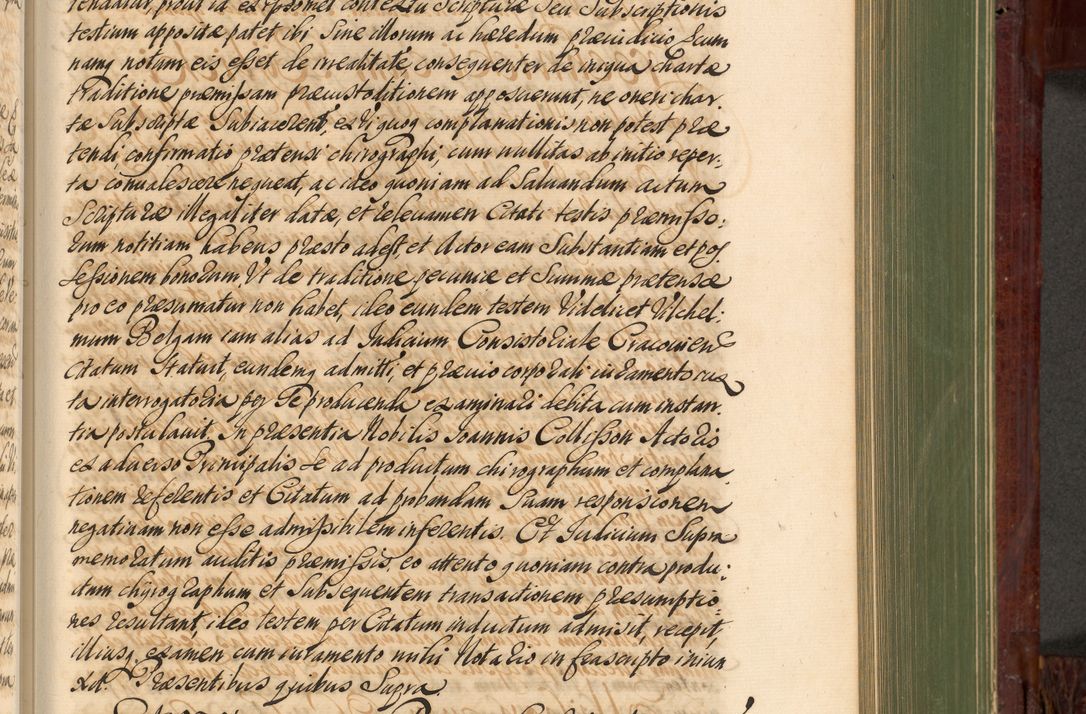 testium appositæ patet ibi sine illorum ac hæredum præiudicio, secun
namq notum eis esset de irrealitate consequenter de iniqua chartæ
traditione præmissam præcustoditionem apposuerunt, ne oneri char,
tæ subscriptæ subiacerent, ex vi quoq complanationis non potest præ
tendi, confirmatio prætensi chirographi, cum nullitas ab initio reper,
ta conualescere nequeat, ac ideo quoniam ad saluandum actum
Scripturæ illegaliter datæ, et releuamen Citati testis præmisso,
rum notitiam habens præsto adest, et Actor eam substantiam et pos
sessionem bonorum, Vt de traditione pecuniæ et Summæ prætensæ
pro eo præsumatur non habet, ideo eundem testem Videlicet Vilchel,
mum Belgam iam alias ad Iudicium Consistoriale Cracouien
Citatum statuit, eundemq admitti, et præuio corporali iuramento iux
ta interrogatoria per se producenda examinari debita cum instan
tia postulauit, In præsentia Nobilis Ioannis Collisson Actoris
ex aduerso Principalis se ad productum chirographum et complana
tionem referentis et Citatum ad probandam suam responsionem
negatiuam non esse admissibilem inferentis. Et Iudicium supra
memoratum auditis præmissis, eo attento quoniam contra produ,
ctum chyrographum et subsequentem transactionem præsumptio
nes resultant, ideo testem per Citatum inductum admisit, recepit
illiusq examen cum iuramento mihi Notario infrascripto iniun
xit. Præsentibus quibus supra